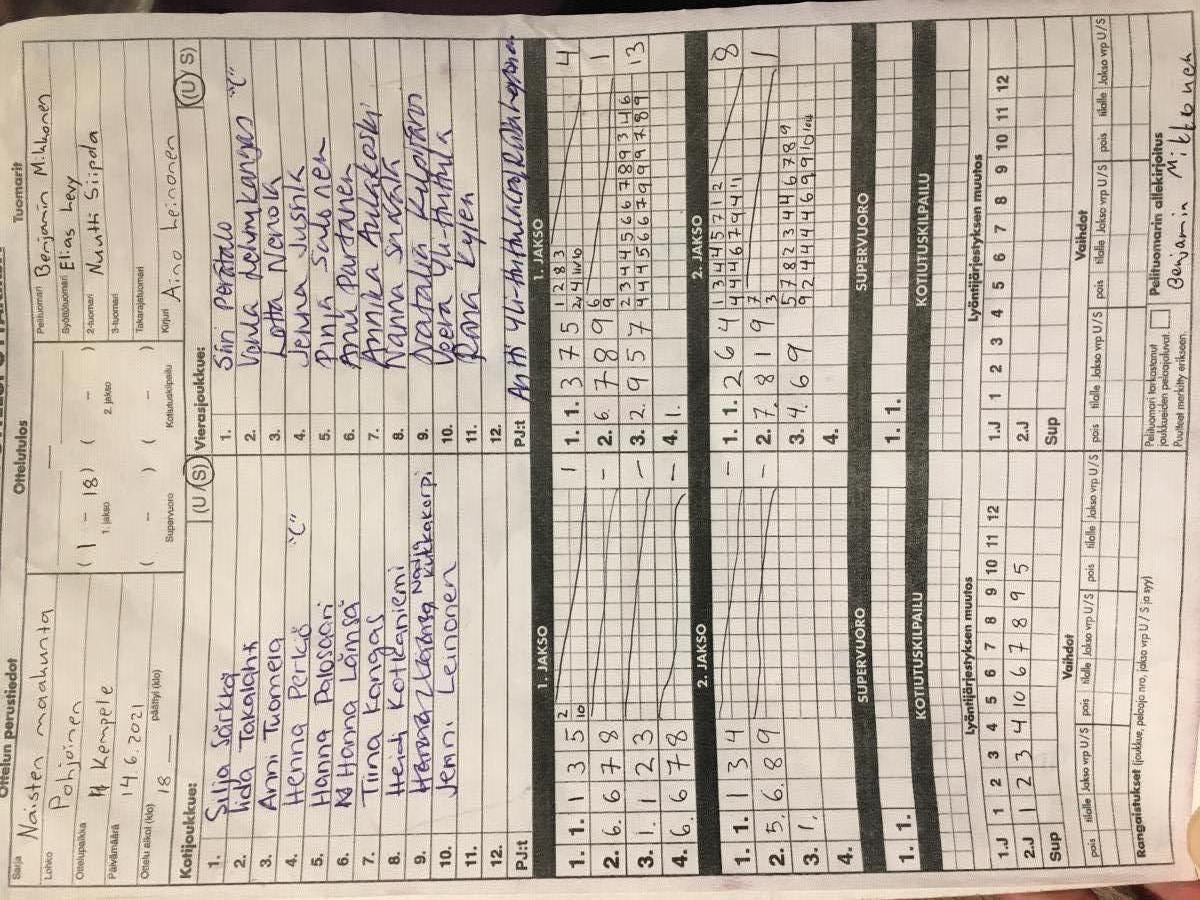 Ottelun perustiedot
Ottelutulos
Tuomarit
Sarja Naisten maakunta
Lohko Pohjoinen
Ottelupaikka Kempele
Päivämäärä 14.6.2021
Ottelu alkoi (klo) 18 päättyi (klo)
( 1 - 18 ) ( - )
1. jakso 2. jakso
( - ) ( - )
Supervuoro Kotiutuskilpailu
Pelituomari Benjamin Mikkonen
Syöttötuomari Elias Levy
2-tuomari
3-tuomari
Takarajatuomari
Kirjuri Aino Leinonen
Kotijoukkue: (U/S)
1. Silja Särkkä
2. Iida Takalahti
3. Anni Tuomela
4. Henna Perkiö "C"
5. Hanna Palosaari
6. Hanna Länsä
7. Tiina Kangas
8. Heidi Kotkaniemi
9. Nadja Kukkakorpi
10. Jemni Leinonen
11.
12.
PJ:t
Vierasjoukkue: (U/S)
1. Siini
2. "C"
3. Lotta Nenola
4. Jenna Juska
5. Pinja Salonen
6. Anu Partanen
7. Annika Aulakoski
8. Nanna
9. Natalia
10. Veera Yli-Huhtala
11.
12.
PJ:t Antti Yli-Huhtala
1. JAKSO 1. JAKSO
1. 1. 1 3 5 2 10 1
2. 6. 6 7 8 –
3. 1. 1 2 3 –
4. 6. 6 7 8 –
1. 1. 3 7 5 1 2 8 3 4
2. 6. 7 8 9 6 9 1
3. 2. 9 5 7 2 3 4 4 5 6 6 7 8 9 3 4 6 13
4. 1.
2. JAKSO 2. JAKSO
1. 1. 1 3 4 –
2. 5. 6. 8 9 –
3. 1.
4.
1. 1. 2 6 4 1 3 4 4 5 7 1 2 8
4 4 4 6 7 9 4 11
2. 7. 8 1 9 7 3 1
3. 4. 6 9 5 7 8 2 3 4 4 6 7 8 9
4.
SUPERVUORO SUPERVUORO
1. 1.
1. 1.
KOTIUTUSKILPAILU KOTIUTUSKILPAILU
Lyöntijärjestyksen muutos
1.J 1 2 3 4 5 6 7 8 9 10 11 12
2.J 1 2 3 4 10 6 7 8 9 5
Sup
Lyöntijärjestyksen muutos
1.J 1 2 3 4 5 6 7 8 9 10 11 12
2.J
Sup
Vaihdot Vaihdot
pois tilalle Jakso vrp U/S pois tilalle Jakso vrp U/S pois tilalle Jakso vrp U/S pois tilalle Jakso vrp U/S pois tilalle Jakso vrp U/S pois tilalle Jakso vrp U/S
Rangaistukset (joukkue, pelaaja nro, jakso vrp U/S ja syy)
Pelituomari tarkastanut
joukkueiden pelaajaluvat.
Puutteet merkitty erikseen.
Pelituomarin allekirjoitus
Benjamin Mikkonen